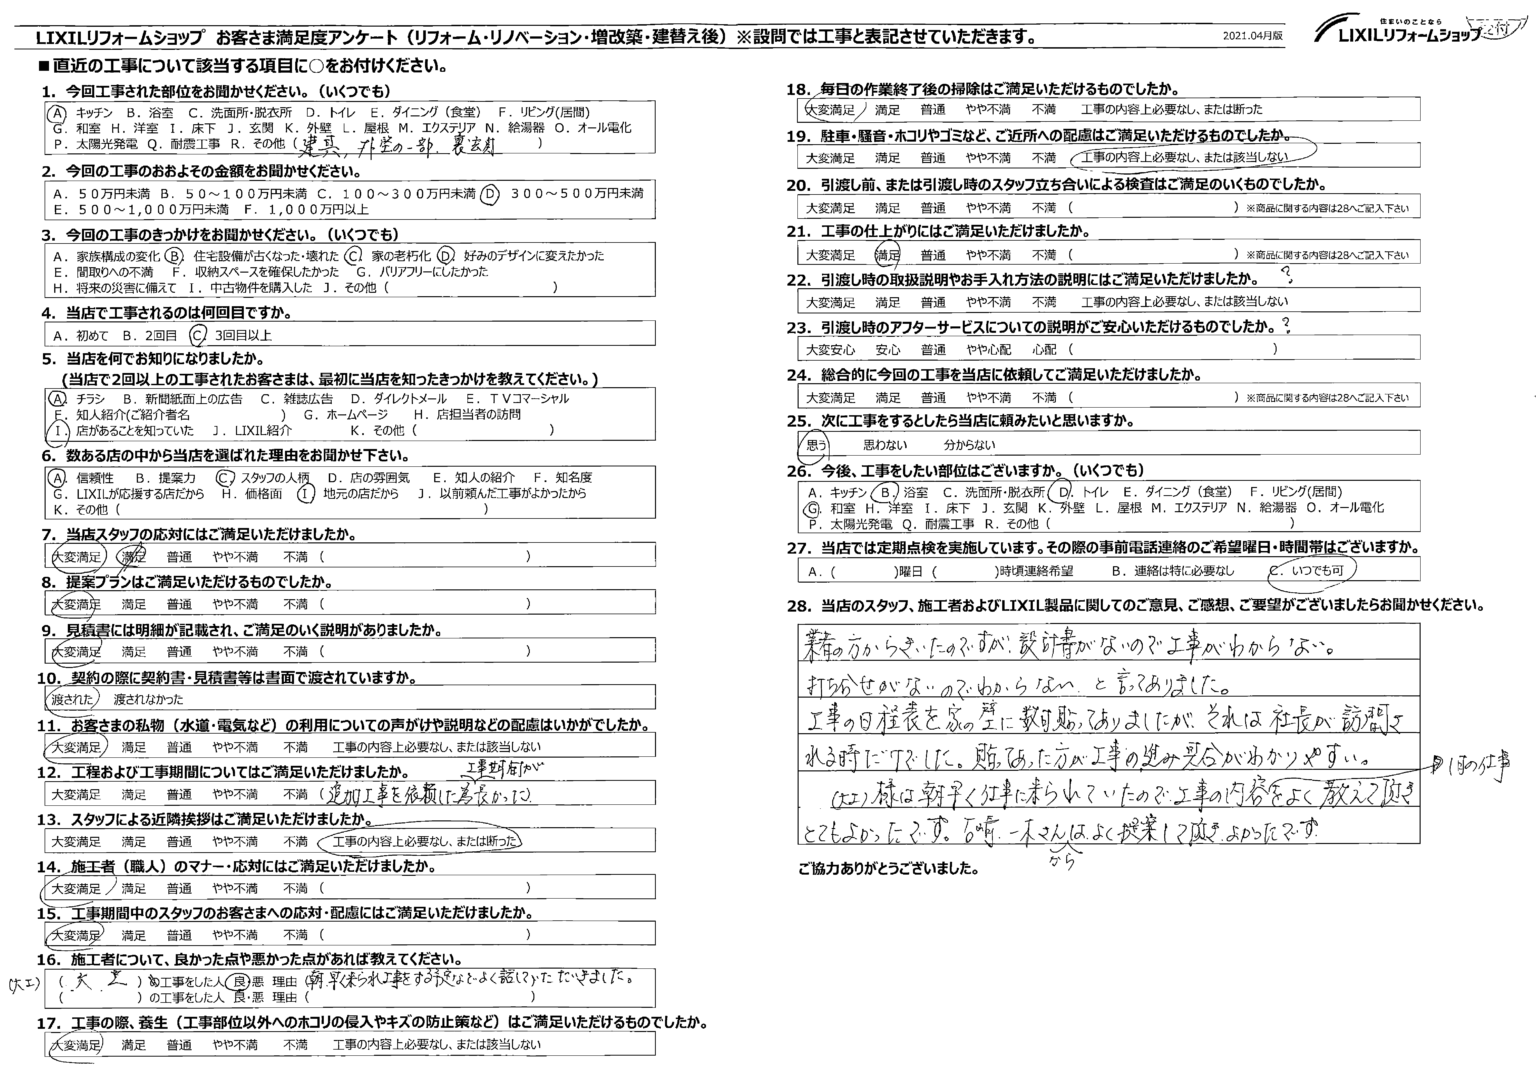 LIXILリフォームショップ お客さま満足度アンケート（リフォーム・リノベーション・増改築・建替え後）※設問では工事と表記させていただきます。
2021.04月版
住まいのことなら
LIXILリフォームショップ
■直近の工事について該当する項目に○をお付けください。
1．今回工事された部位をお聞かせください。（いくつでも）
A．キッチン B．浴室 C．洗面所・脱衣所 D．トイレ E．ダイニング（食堂） F．リビング(居間)
G．和室 H．洋室 I．床下 J．玄関 K．外壁 L．屋根 M．エクステリア N．給湯器 O．オール電化
P．太陽光発電 Q．耐震工事 R．その他（建具，外壁の一部，裏玄関）
2．今回の工事のおおよその金額をお聞かせください。
A．50万円未満 B．50～100万円未満 C．100～300万円未満 D．300～500万円未満
E．500～1,000万円未満 F．1,000万円以上
3．今回の工事のきっかけをお聞かせください。（いくつでも）
A．家族構成の変化 B．住宅設備が古くなった・壊れた C．家の老朽化 D．好みのデザインに変えたかった
E．間取りへの不満 F．収納スペースを確保したかった G．バリアフリーにしたかった
H．将来の災害に備えて I．中古物件を購入した J．その他（ ）
4．当店で工事されるのは何回目ですか。
A．初めて B．2回目 C．3回目以上
5．当店を何でお知りになりましたか。
(当店で2回以上の工事されたお客さまは、最初に当店を知ったきっかけを教えてください。)
A．チラシ B．新聞紙面上の広告 C．雑誌広告 D．ダイレクトメール E．TVコマーシャル
F．知人紹介(ご紹介者名 ) G．ホームページ H．店担当者の訪問
I．店があることを知っていた J．LIXIL紹介 K．その他（ ）
6．数ある店の中から当店を選ばれた理由をお聞かせ下さい。
A．信頼性 B．提案力 C．スタッフの人柄 D．店の雰囲気 E．知人の紹介 F．知名度
G．LIXILが応援する店だから H．価格面 I．地元の店だから J．以前頼んだ工事がよかったから
K．その他（ ）
7．当店スタッフの応対にはご満足いただけましたか。
大変満足 満足 普通 やや不満 不満（ ）
8．提案プランはご満足いただけるものでしたか。
大変満足 満足 普通 やや不満 不満（ ）
9．見積書には明細が記載され、ご満足のいく説明がありましたか。
大変満足 満足 普通 やや不満 不満（ ）
10．契約の際に契約書・見積書等は書面で渡されていますか。
渡された 渡されなかった
11．お客さまの私物（水道・電気など）の利用についての声がけや説明などの配慮はいかがでしたか。
大変満足 満足 普通 やや不満 不満 工事の内容上必要なし、または該当しない
12．工程および工事期間についてはご満足いただけましたか。
工事期間が
大変満足 満足 普通 やや不満 不満（追加工事を依頼した為長かった）
13．スタッフによる近隣挨拶はご満足いただけましたか。
大変満足 満足 普通 やや不満 不満 工事の内容上必要なし、または断った
14．施工者（職人）のマナー・応対にはご満足いただけましたか。
大変満足 満足 普通 やや不満 不満（ ）
15．工事期間中のスタッフのお客さまへの応対・配慮にはご満足いただけましたか。
大変満足 満足 普通 やや不満 不満（ ）
16．施工者について、良かった点や悪かった点があれば教えてください。
(大工)（ ）の工事をした人 良・悪 理由（朝早く来られ工事をする予定などよく話していただきました。
（ ）の工事をした人 良・悪 理由（ ）
17．工事の際、養生（工事部位以外へのホコリの侵入やキズの防止策など）はご満足いただけるものでしたか。
大変満足 満足 普通 やや不満 不満 工事の内容上必要なし、または該当しない
18．毎日の作業終了後の掃除はご満足いただけるものでしたか。
大変満足 満足 普通 やや不満 不満 工事の内容上必要なし、または断った
19．駐車・騒音・ホコリやゴミなど、ご近所への配慮はご満足いただけるものでしたか。
大変満足 満足 普通 やや不満 不満 工事の内容上必要なし、または該当しない
20．引渡し前、または引渡し時のスタッフ立ち合いによる検査はご満足のいくものでしたか。
大変満足 満足 普通 やや不満 不満（ ）※商品に関する内容は28へご記入下さい
21．工事の仕上がりにはご満足いただけましたか。
大変満足 満足 普通 やや不満 不満（ ）※商品に関する内容は28へご記入下さい
22．引渡し時の取扱説明やお手入れ方法の説明にはご満足いただけましたか。？
大変満足 満足 普通 やや不満 不満 工事の内容上必要なし、または該当しない
23．引渡し時のアフターサービスについての説明がご安心いただけるものでしたか。？
大変安心 安心 普通 やや心配 心配（ ）
24．総合的に今回の工事を当店に依頼してご満足いただけましたか。
大変満足 満足 普通 やや不満 不満（ ）※商品に関する内容は28へご記入下さい
25．次に工事をするとしたら当店に頼みたいと思いますか。
思う 思わない 分からない
26．今後、工事をしたい部位はございますか。（いくつでも）
A．キッチン B．浴室 C．洗面所・脱衣所 D．トイレ E．ダイニング（食堂） F．リビング(居間)
G．和室 H．洋室 I．床下 J．玄関 K．外壁 L．屋根 M．エクステリア N．給湯器 O．オール電化
P．太陽光発電 Q．耐震工事 R．その他（ ）
27．当店では定期点検を実施しています。その際の事前電話連絡のご希望曜日・時間帯はございますか。
A．（ )曜日（ )時頃連絡希望 B．連絡は特に必要なし C．いつでも可
28．当店のスタッフ、施工者およびLIXIL製品に関してのご意見、ご感想、ご要望がございましたらお聞かせください。
業者の方からきいたのですが、設計書がないので工事がわからない。
打ち合せがないのでわからない、と言ってありました。
工事の日程表を家の壁に数回貼ってありましたが、それは社長が訪問さ
れる時だけでした。貼ってあった方が工事の進み具合がわかりやすい。
(大工)様は朝早く仕事に来られていたので工事の内容をよく教えて頂き
1日の仕事
とてもよかったです。 一木さんはよく提案して頂きよかったです。
から
ご協力ありがとうございました。